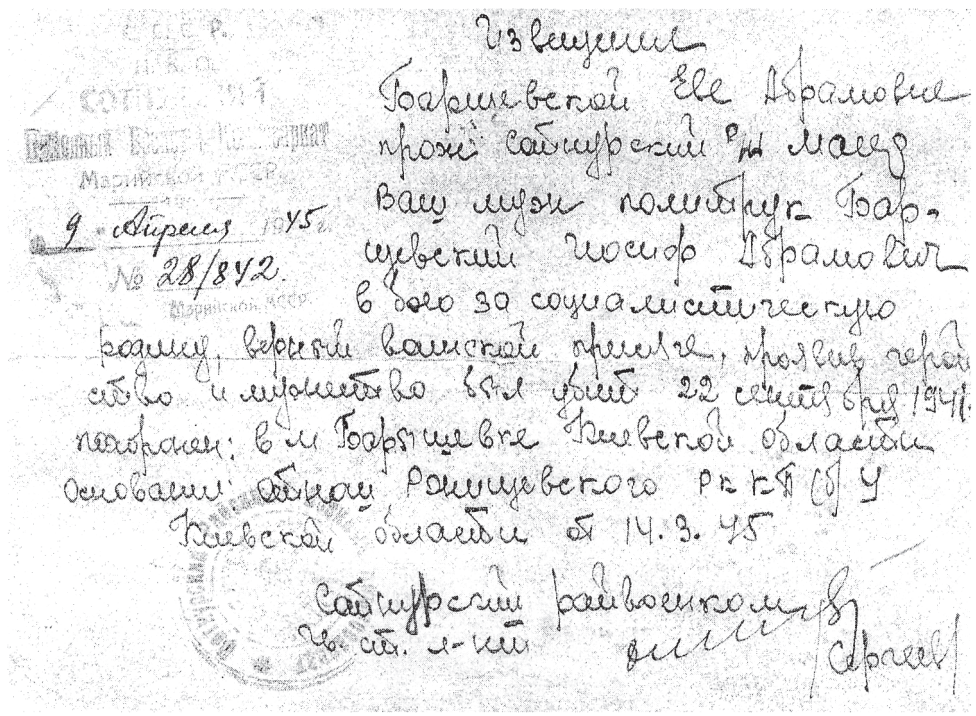 С.С.С.Р.
Н.К.О.
Районный Военный Комиссариат
Марийской АССР
9 Апреля 1945 г.
№ 28/842.
Марийской АССР
Извещение
Барщевской Еве Абрамовне
прож Сотнурский р/н МАССР
Ваш муж политрук Бар-
щевский Иосиф Абрамович
в бою за социалистическую
родину, верный воинской присяге, проявив герой
ство и мужество был убит 22 сентября 1941г.
похоронен: в м Барышевке Киевской области
Основание: РК КП(б)У
Киевской области от 14.3.45
Сотнурский райвоенком
ст. л-нт
/Сергеев/